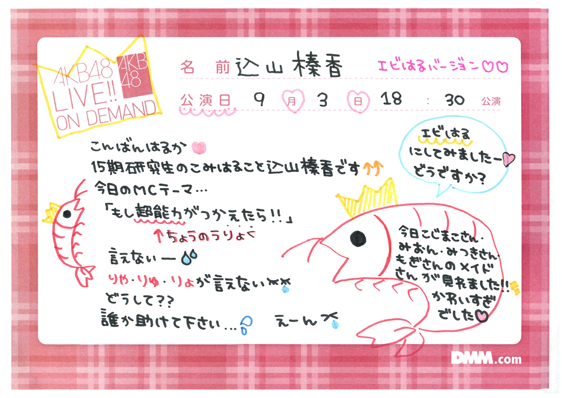 AKB48
LIVE!!
ON DEMAND
AKB
48
名 前 込山 榛香
エビはるバージョン♡♡
公演日 9 月 3 日 18 : 30 公演
こんばんはるか
15期研究生のこみはること込山榛香です↑↑
今日のMCテーマ…
「もし超能力がつかえたら!!」
↑ちょうのうりょく
言えないー
りゃ・りゅ・りょが言えない××
どうして??
誰か助けて下さい… えーん
エビはる
にしてみましたー
どうですか?
今日こじまこさん・
みおん・みつきさん・
もぎさんのメイド
さんが見れました!!
かわいすぎ
でした
DMM.com